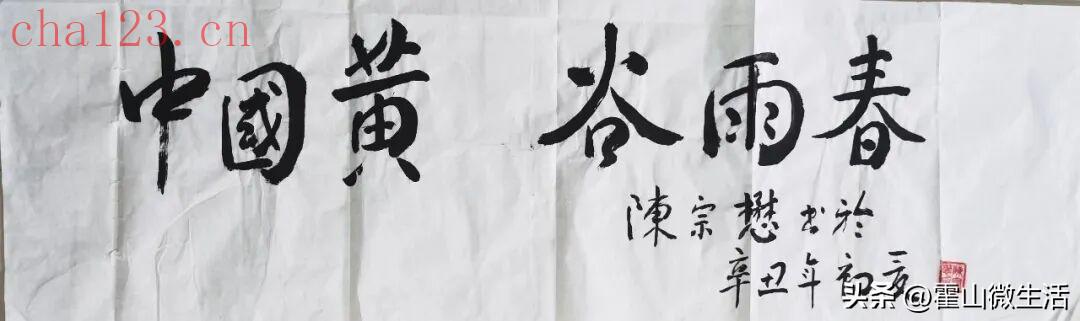 cha123.cn
中國黄 谷雨春
陳宗懋书於
辛丑年初夏
头条 @霍山微生活